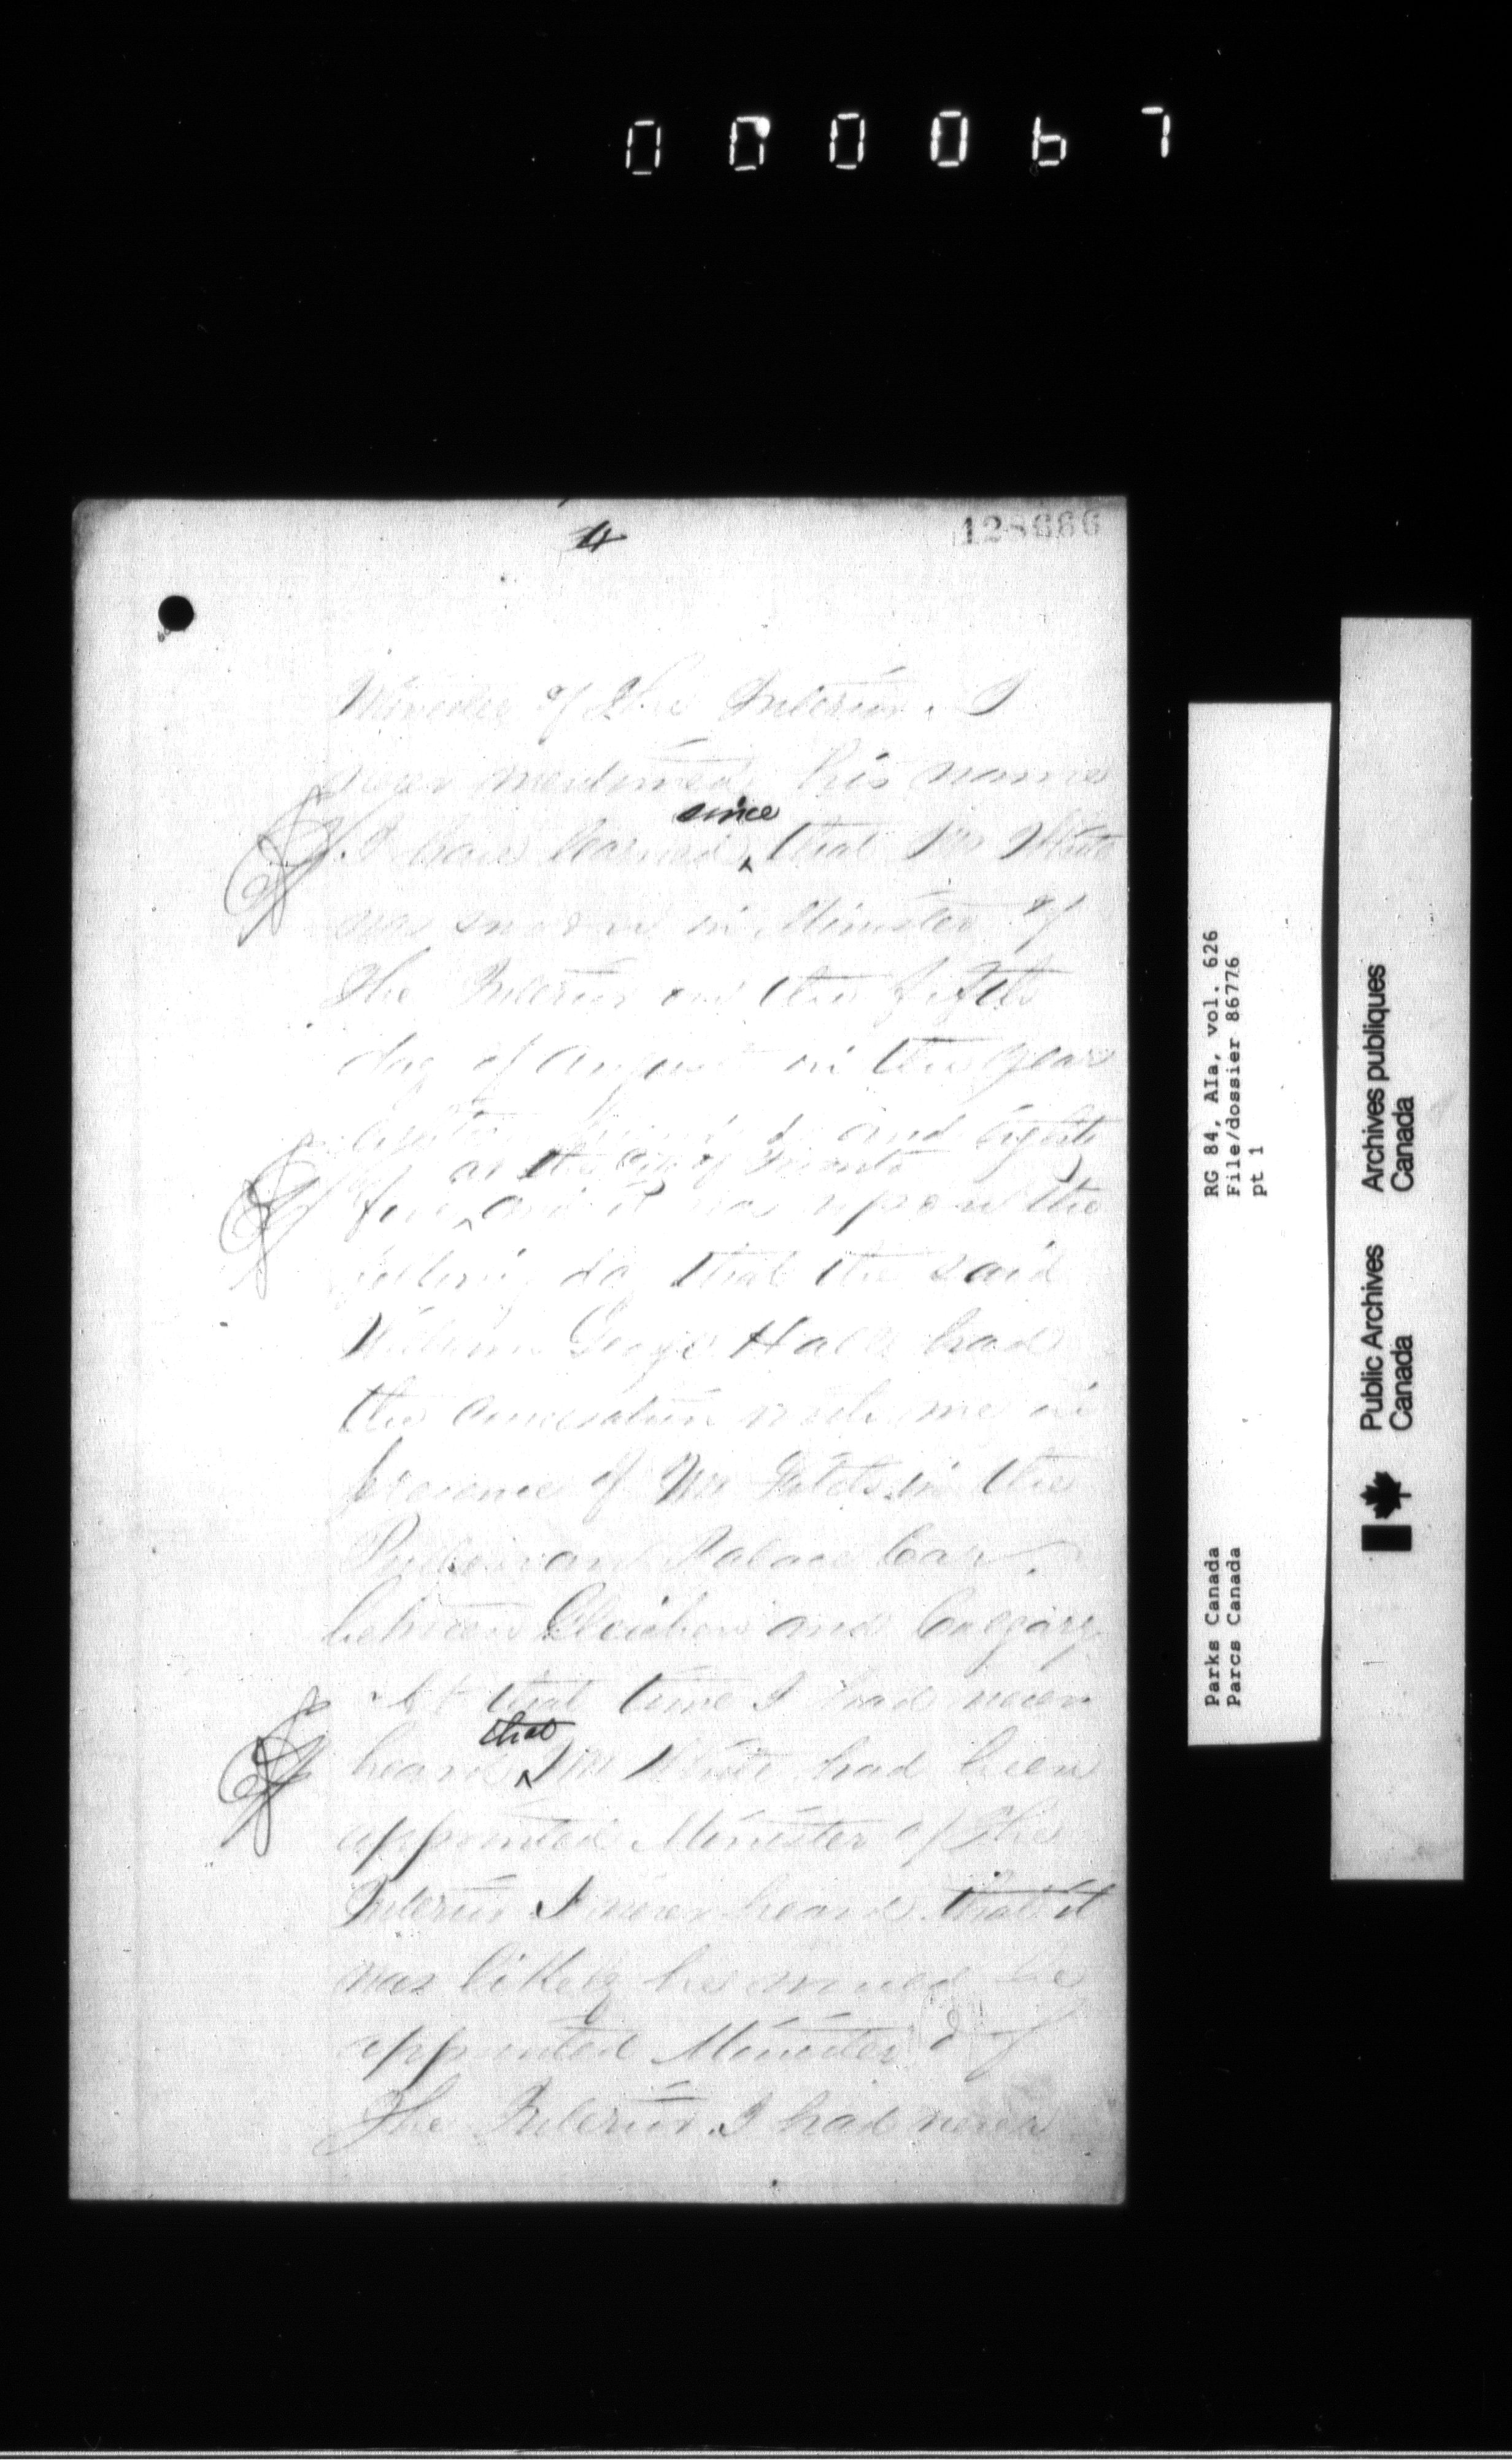 000067
4
128686
Minister of The Interior. I
never mentioned his name
since
I have learned ^ that Mr White
was sworn in Minister of
The Interior on the fifth
day of August in the year
and eighty
at the City of Toronto
five ^ and it was upon the
day that the said
William George Hall had
the conversation with me in
presence of Mr in the
Pullman Palace Car
between Gleichen and Calgary
At that time I had never
that
heard ^ Mr White had been
appointed Minister of The
Interior I never heard that it
was likely he would be
appointed Minister of
The Interior. I had never
RG 84, AIa, vol. 626
File/dossier 86776
pt 1
Parks Canada
Parcs Canada
Public Archives Archives publiques
Canada Canada